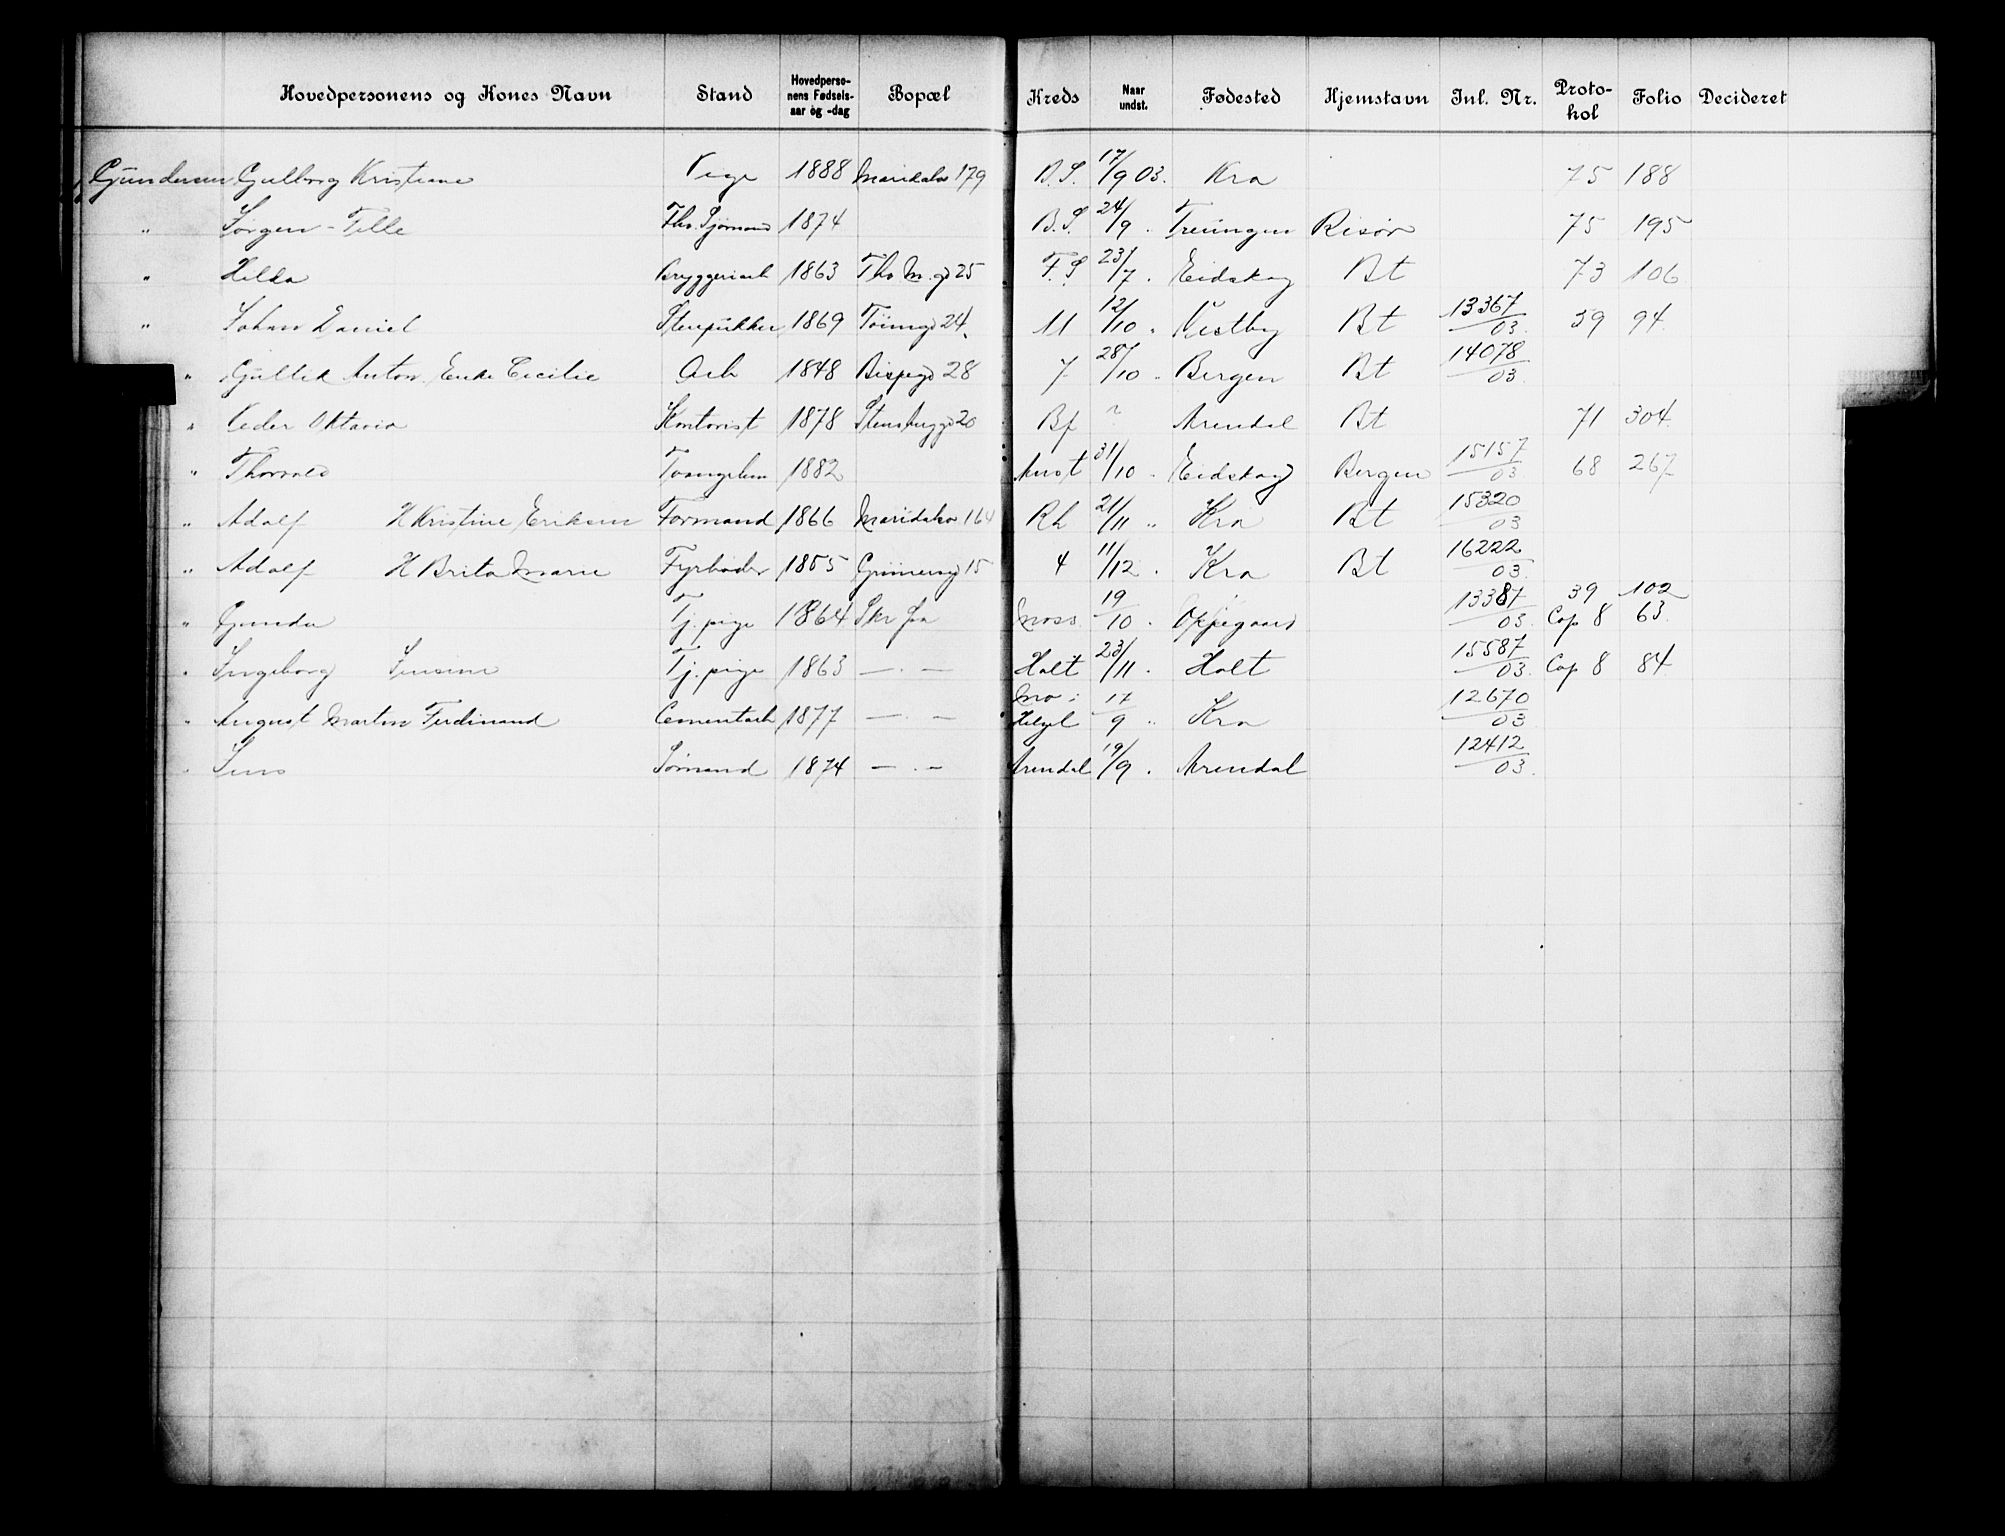 Hovedpersonens og Kones Navn Stand Hovedpersonens Fødselsaar og -dag Bopæl Kreds Naar undst. Fødested Hjemstavn Inl. Nr. Protokol Folio Decideret
Gundersen Gulborg Kristiane Pige 1888 Maridalsv 179 B.S. 17/9 03. Kra 75 188
" Jørgen - Tille Fhv. Sjømand 1874 B.S 24/9 . Treungen Risør 75 195
" Hilda Bryggeriarb 1863 Ths M. gd 25 F.S 23/7 . Eidskog Bt 73 106
" Johan Daniel Stenpukker 1869 Tøiengd 24 11 12/10 . Vestby Bt 13367/03. 39 94
" Gullik Anton, Enke Cecilie Arb 1848 Bispegd 28 7 28/10 " Bergen Bt 14078/03.
" Peder Oktavio Kontorist 1878 Stensbergd 20 Bf ? Arendal Bt 71 304
" Thorvald Tvangslem 1882 Anst 31/10 - Eidskog Bergen 15157/03 68 267
" Adolf H Kristine Eriksen Formand 1866 Maridalsv 164 Rh 21/11 " Kra Bt 15320/03
" Adolf H Brita Marie Fyrbøder 1855 Grünersgd 15 4 11/12 . Kra Bt 16222/03.
" Gunda Tj. pige 1864 Skr fra Moss 19/10 . Oppegaard 13387/03. 39 102
Cop 8 63
" Ingeborg Jensine Tj. pige 1863 — . — Holt 23/11 . Holt 15587/03. Cop 8 84
" August Martin Ferdinand Cementarb 1877 — . — Mo i Helgel 17/9 " Kra 12670/03
" Jens Sømand 1874 — . — Arendal 19/9 . Arendal 12412/03.